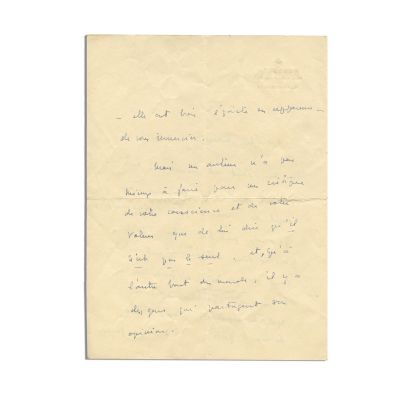 — elle est trois
de vous remercier.
Mais un auteur n'a pas
mieux à faire pour un critique
de votre conscience et de votre
valeur que de lui dire qu'il
n'est pas le seul, et, qu'à
l'autre bout du monde, il y a
des gens qui partagent son
opinion.